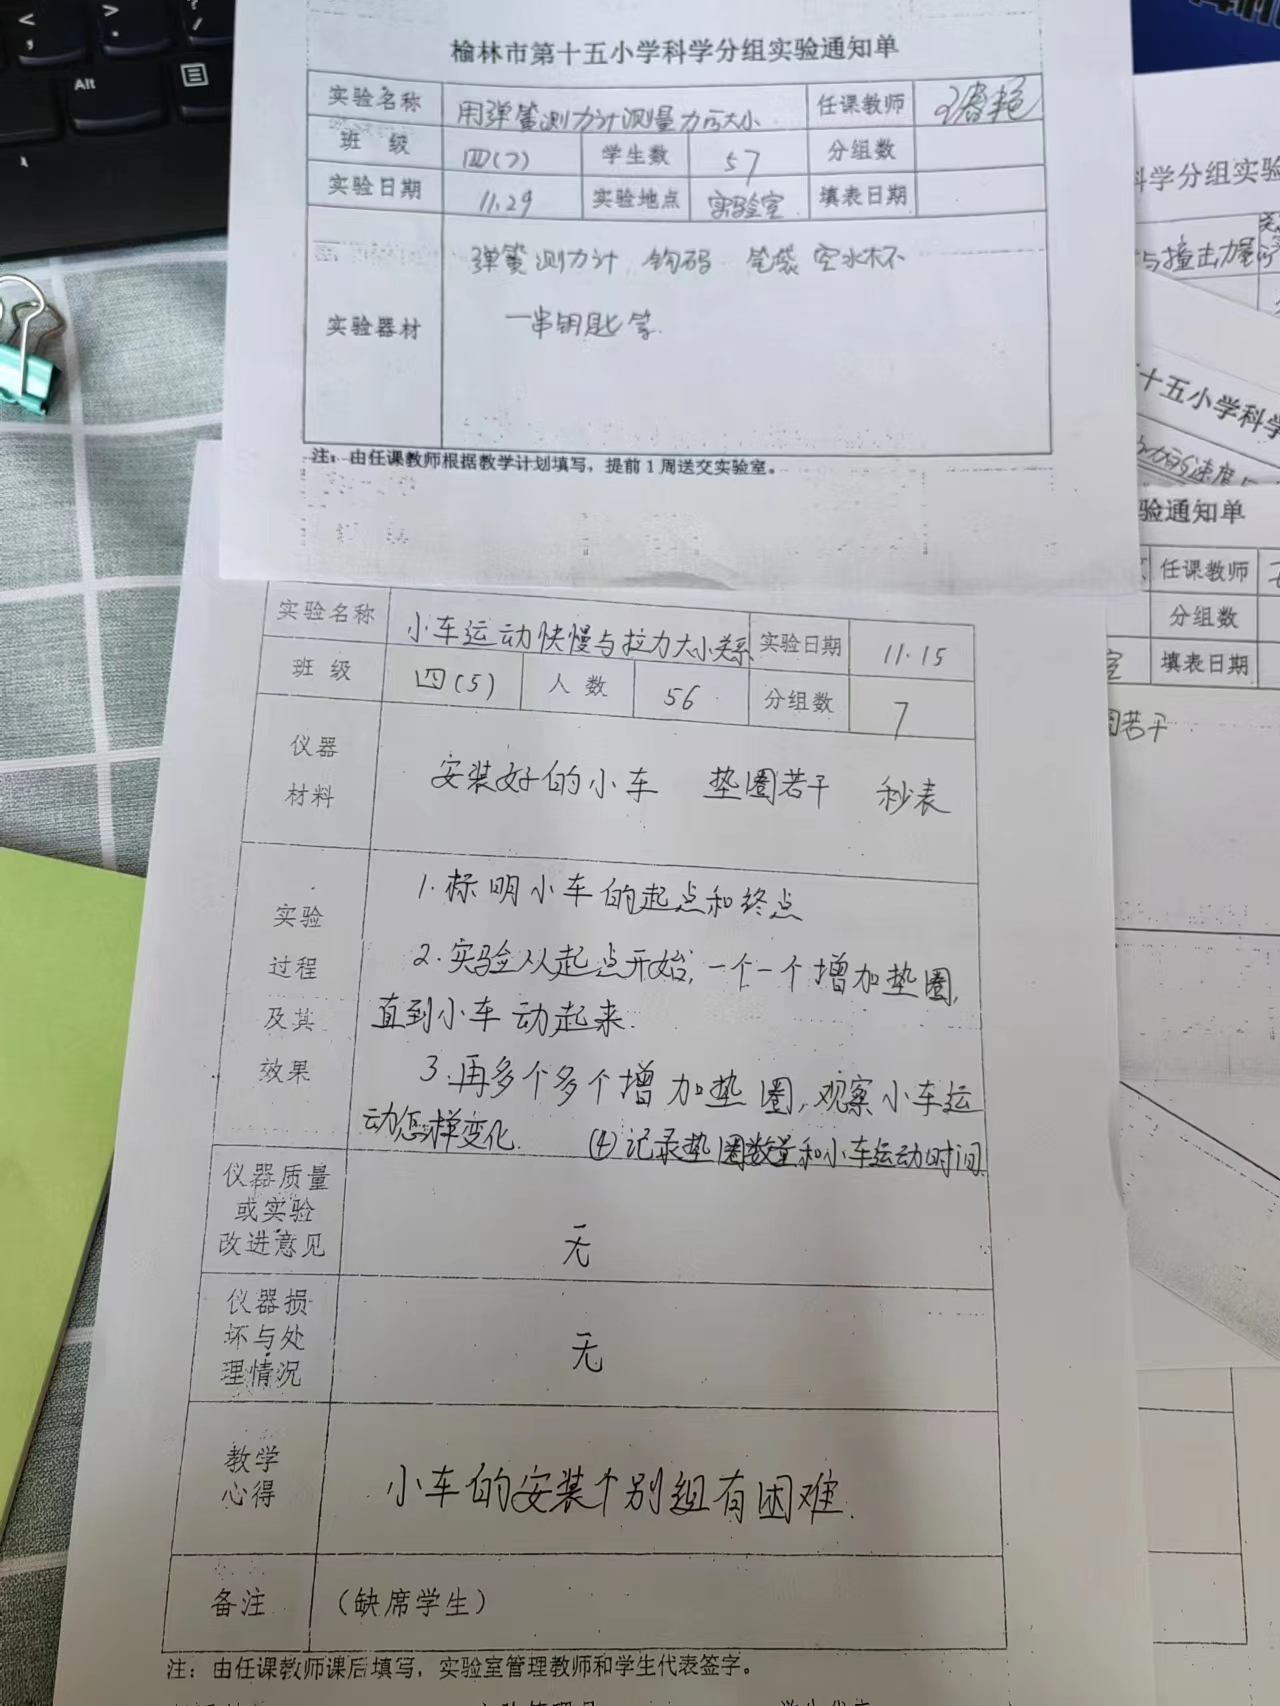 Alt
榆林市第十五小学科学分组实验通知单
实验名称 用弹簧测力计测量力的大小 任课教师
班 级 四(7) 学生数 57 分组数
实验日期 11.29 实验地点 实验室 填表日期
弹簧测力计 钩码 笔袋 空水杯
实验器材 一串钥匙等.
注：由任课教师根据教学计划填写，提前1周送交实验室。
实验名称 小车运动快慢与拉力大小关系 实验日期 11.15
班 级 四(5) 人 数 56 分组数 7
仪器
材料
安装好的小车 垫圈若干 秒表
实验
过程
及其
效果
1.标明小车的起点和终点
2.实验从起点开始,一个一个增加垫圈,
直到小车动起来.
3.再多个多个增加垫圈,观察小车运
动怎样变化. (4)记录垫圈数量和小车运动时间.
仪器质量
或实验
改进意见
无
仪器损
坏与处
理情况
无
教学
心得
小车的安装个别组有困难.
备注 （缺席学生）
注：由任课教师课后填写，实验室管理教师和学生代表签字。
科学分组实验
与撞击力
十五小学科学
速度
验通知单
任课教师
分组数
室 填表日期
圈若干